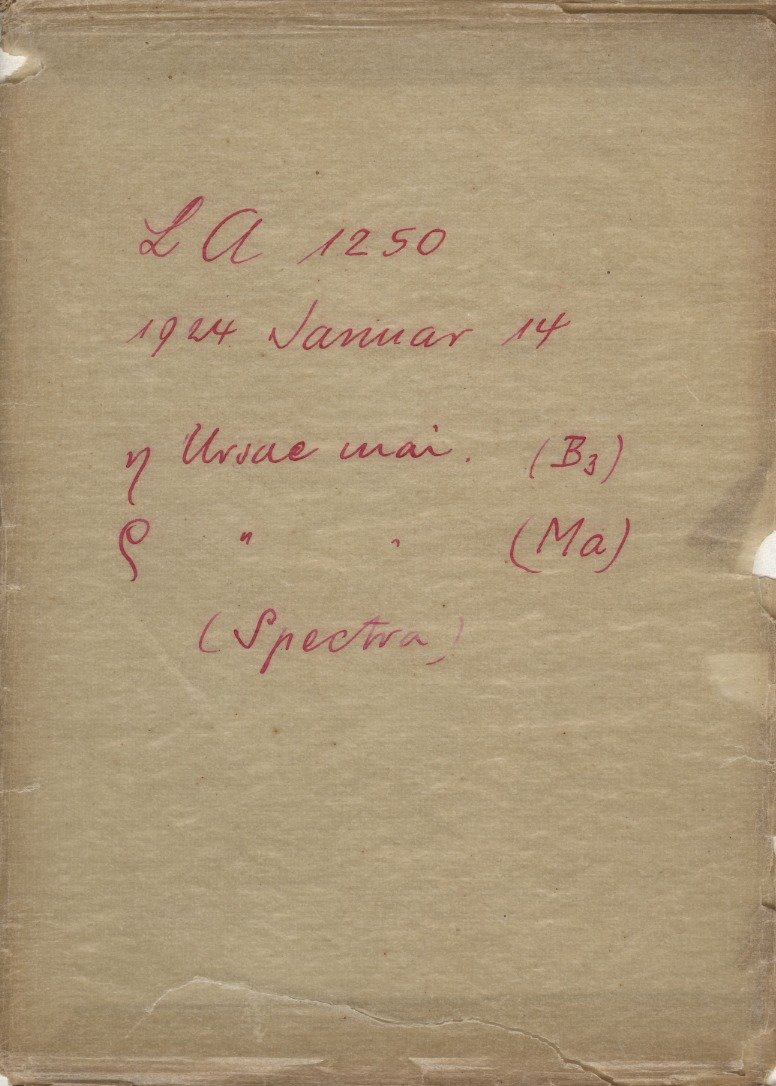 LA 1250
1924 Januar 14
η Ursae mai. (B3)
ρ " " (Ma)
(Spectra)